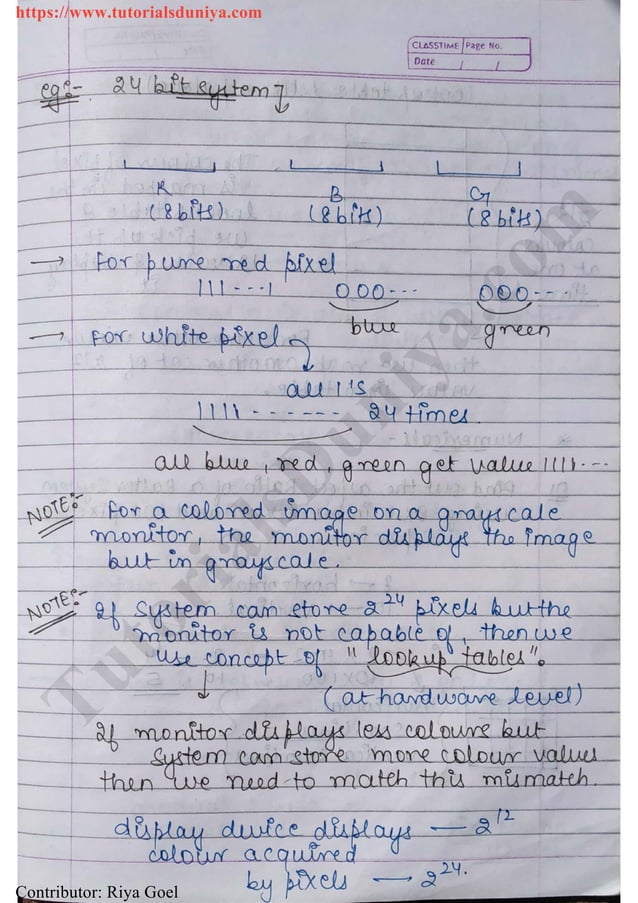 https://www.tutorialsduniya.com
CLASSTIME Page No.
Date / /
eg:- 24 bit system
R B G
(8bits) (8bits) (8bits)
→ for pure red pixel
111---1 000--- 000---
blue green
→ for white pixel
all 1's
1111------- 24 times.
all blue, red, green get value 1111---
NOTE:- for a colored image on a grayscale
monitor, the monitor displays the image
but in grayscale.
NOTE:- If system can store 2^24 pixels but the
monitor is not capable of, then we
use concept of "lookup tables".
(at hardware level)
If monitor displays less colours but
system can store more colour values
then we need to match this mismatch.
display device displays — 2^12
colour acquired
by pixels → 2^24.
TutorialsDuniya.com
Contributor: Riya Goel